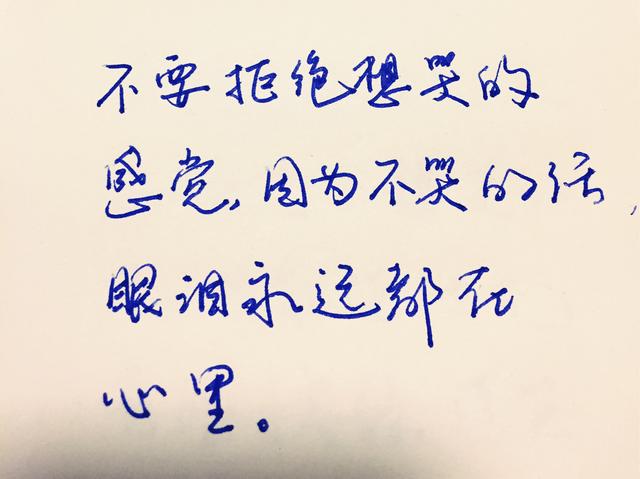 不要拒绝想哭的
感觉,因为不哭的话,
眼泪永远都在
心里。